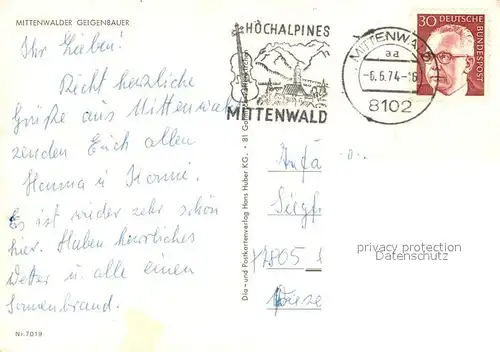 MITTENWALDER GEIGENBAUER
Ihr Lieben!
Recht herzliche
Grüße aus Mittenwald
senden Euch allen
Hanna u.
Es ist wieder sehr schön
hier. Haben herrliches
Wetter u. alle einen
Sonnenbrand.
Nr. 7019
Dia- und Postkartenverlag Hans Huber KG. · 81 Garmisch-Partenkirchen
HÖCHALPINES
MITTENWALD
MITTENWALD
aa
-6.6.74-16
8102
30 DEUTSCHE
BUNDESPOST
Siegf
7805
privacy protection
Datenschutz